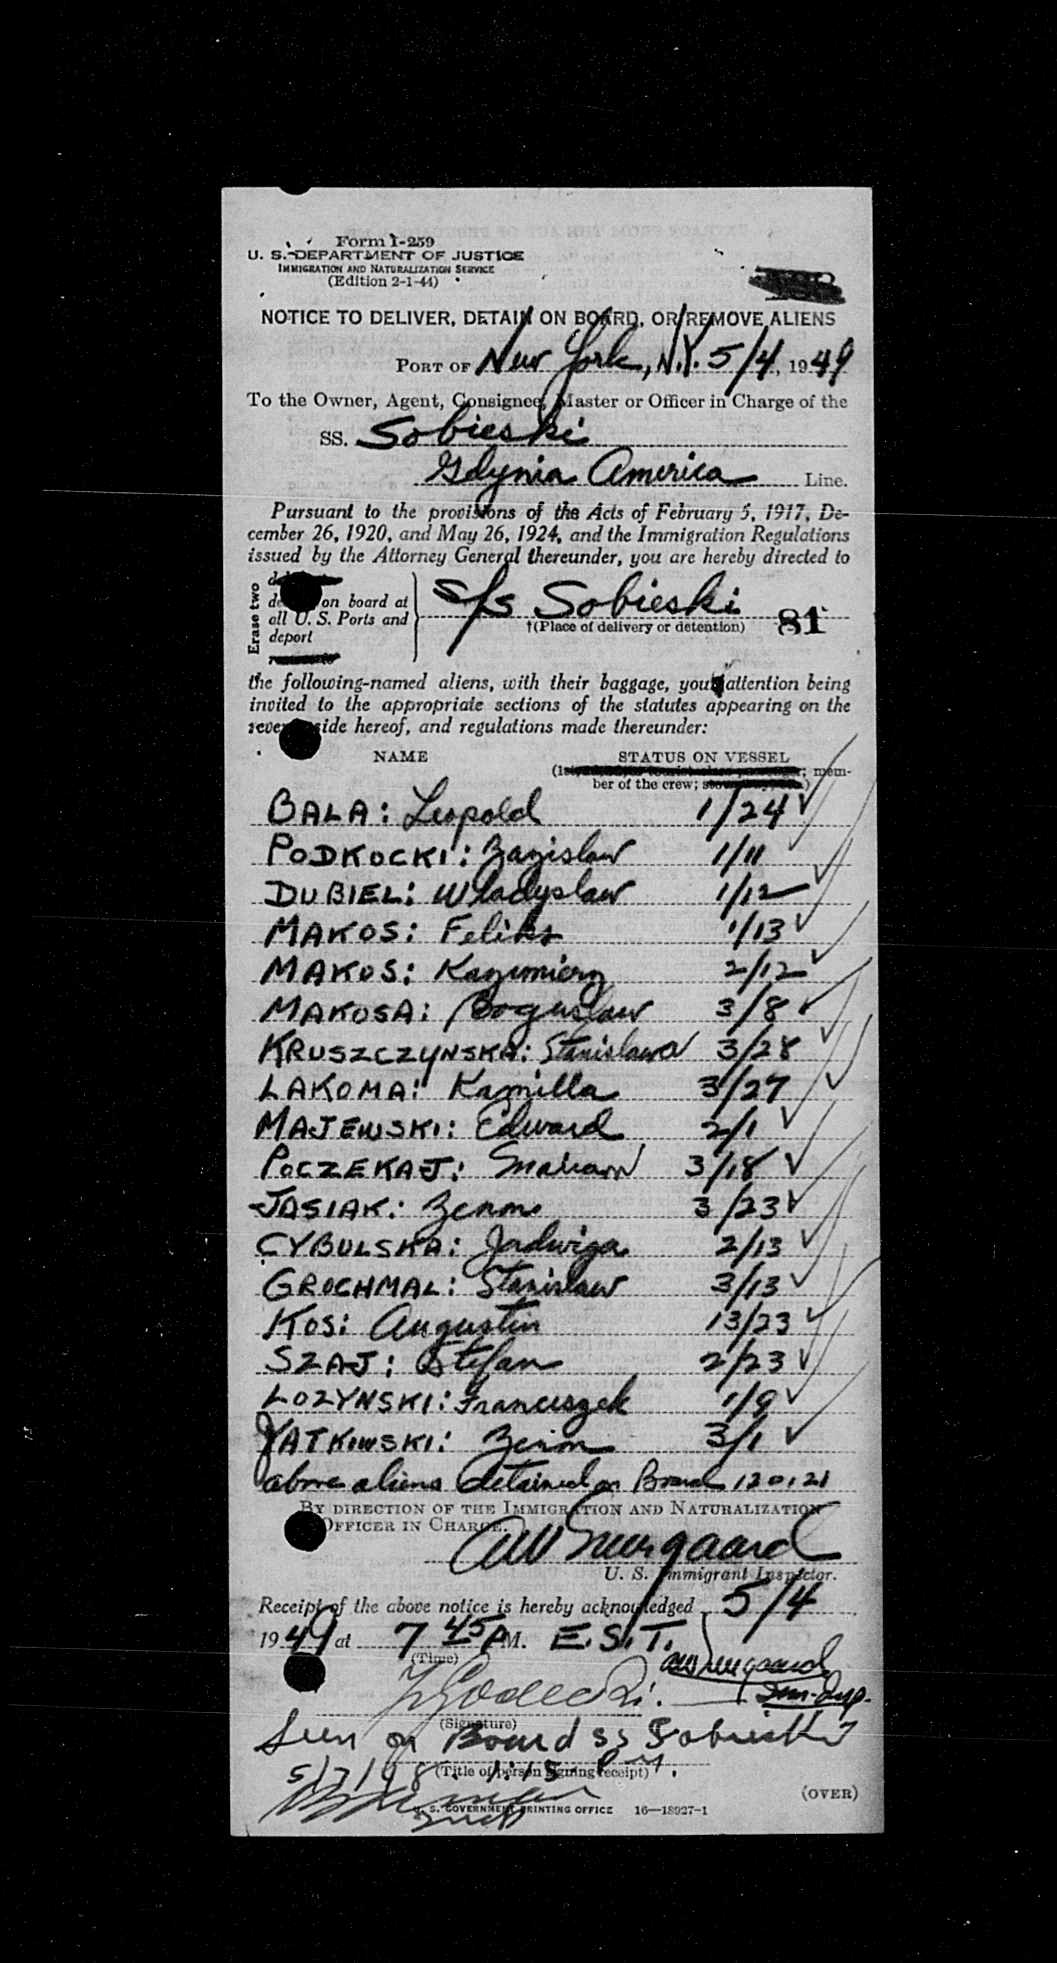 Form I-259
U. S. DEPARTMENT OF JUSTICE
IMMIGRATION AND NATURALIZATION SERVICE
(Edition 2-1-44)
NOTICE TO DELIVER, DETAIN ON BOARD, OR REMOVE ALIENS
PORT OF New York, N.Y. 5/4, 1949
To the Owner, Agent, Consignee, Master or Officer in Charge of the
SS. Sobieski
Gdynia America Line.
Pursuant to the provisions of the Acts of February 5, 1917, De-
cember 26, 1920, and May 26, 1924, and the Immigration Regulations
issued by the Attorney General thereunder, you are hereby directed to
Erase two
on board at
all U. S. Ports and
deport
s/s Sobieski
†(Place of delivery or detention) 81
the following-named aliens, with their baggage, your attention being
invited to the appropriate sections of the statutes appearing on the
reverse side hereof, and regulations made thereunder:
NAME STATUS ON VESSEL
mem-
ber of the crew;
BALA: Leopold 1/24
PODKOCKI: Zazislaw 1/11
DUBIEL: Wladyslaw 1/12
MAKOS: Feliks 1/13
MAKOS: Kazimierz 2/12
MAKOSA: Boguslaw 3/8
KRUSZCZYNSKA: Stanislawa 3/28
LAKOMA: Kamilla 3/27
MAJEWSKI: Edward 2/1
POCZEKAJ: Marian 3/18
JASIAK: Zenon 3/23
CYBULSKA: Jadwiga 2/13
GROCHMAL: Stanislaw 3/13
KOS: Augustin 13/23
SZAJ: Stefan 2/23
LOZYNSKI: Franciszek 1/9
JATKIWSKI: Zenon 3/1
above aliens detained on Board 120.21
BY DIRECTION OF THE IMMIGRATION AND NATURALIZATION
OFFICER IN CHARGE.
U. S. Immigrant Inspector.
Receipt of the above notice is hereby acknowledged 5/4
1949 at 7 45 PM. E.S.T.
(Time)
Imm. Insp.
(Signature)
Seen on Board SS Sobieski
(Title of person signing receipt)
(OVER)
U. S. GOVERNMENT PRINTING OFFICE 16—18927-1